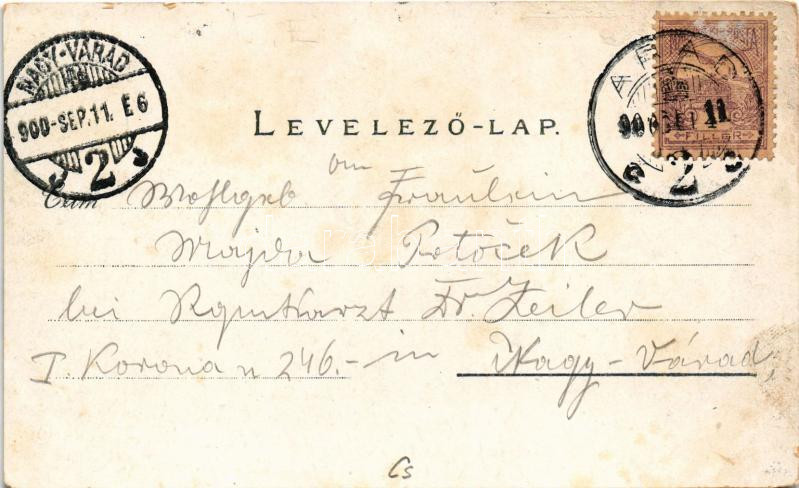 NAGY-VÁRAD
900-SEP.11. E6
2
ARAD
900 SEP 11
2
FILLÉR
LEVELEZŐ-LAP.
an
Czim Wohlgeb Fraulein
Majda Potoček
bei Dr. Zeiler
I. Korona u 246.- in Nagy-Várad,
Cs